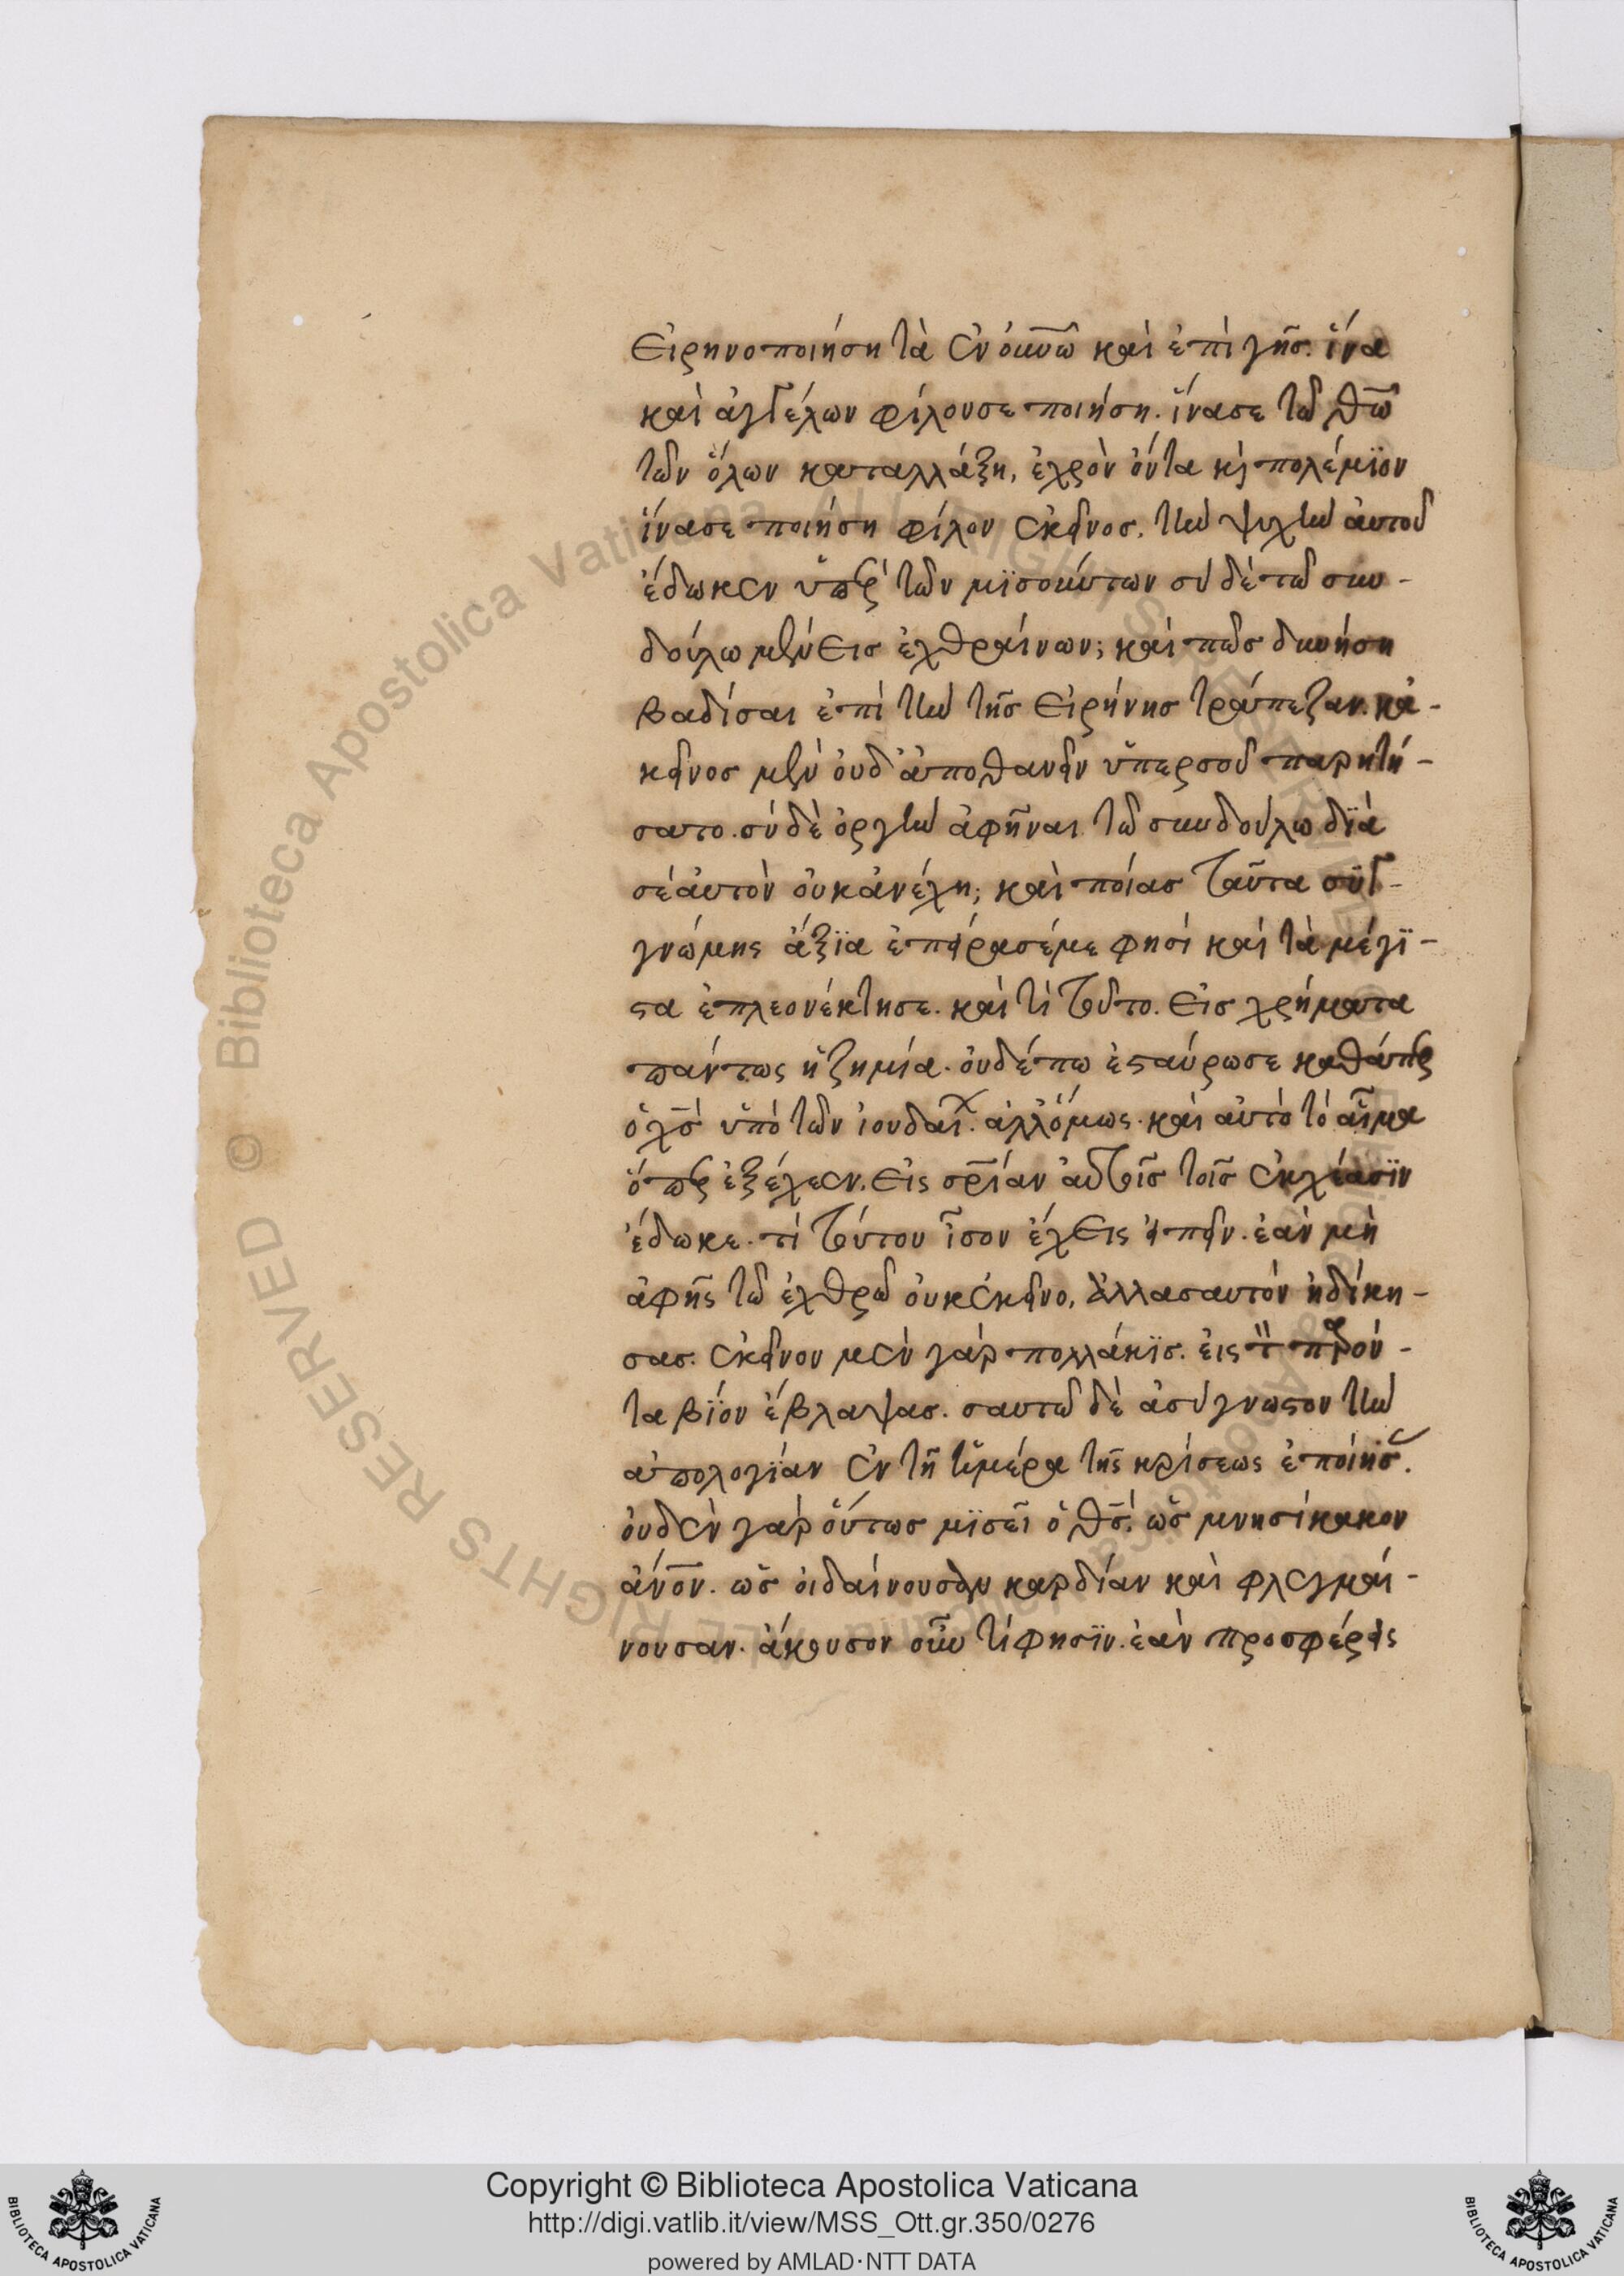 εἰρηνοποιήση τὰ ἐν ὀυνῶ καὶ ἐπὶ γῆς. ἵνα
καὶ ἀγγέλων φίλονσε ποιήση. ἵνασε τῶ θῶ
τῶν ὅλων καταλλάξη, ἐχρὸν ὄντα κὶ πολέμϊον
ἵνασε ποιήση φίλον ἐκεῖνος. τὴν ψυχὴν ἀυτοῦ
ἔδωκεν ὑπὲρ τῶν μϊσούντων σὺ δὲ τῶ συν-
δούλω μένεις ἐχθραίνων; καὶ πῶς δυνήση
βαδίσαι ἐπὶ τὴν τῆς εἰρήνης τράπεζαν. κἀ-
κεῖνος μὲν ὀυδ' ἀποθανεῖν ὕπερσοῦ παρητή-
σατο. σὺ δὲ ὀργὴν ἀφῆναι τῶ συνδούλω δϊὰ
σὲἀυτὸν ὀυκἀνέχη; καὶ ποίας ταῦτα σϋγ-
γνώμης ἄξϊα ἐπείρασέμε φησὶ καὶ τὰ μέγϊ-
στα ἐπλεονέκτησε. καὶ τί τοῦτο. εἰς χρήματα
πάντως ἡ ζημία. ὀυδέπω ἐσταύρωσε καθάπερ
ὁ χς ὑπὸ τῶν ἰουδαί. ἀλλὅμως. καὶ αὐτὸ τὸ αἷμα
ὅπερ ἐξέχεεν. εἰς σρίαν αὐτοῖς τοῖς ἐκχέασϊν
ἔδωκε. τί τούτου ἶσον ἔχεις εἰπεῖν. ἐὰν μὴ
ἀφῆς τῶ ἐχθρῶ ὀυκἐκεῖνο, ἀλλασαυτὸν ἠδίκη-
σας. ἐκεῖνον μὲν γὰρ πολλάκϊς. εἰς τ παρόν-
τα βίον ἔβλαψας. σαυτῶ δὲ ἀσύγνωστον τὴν
ἀπολογϊαν ἐν τῆ ἡμέρα τῆς κρίσεως ἐποίησ.
ὀυδὲν γὰρ ὅυτως μϊσεῖ ὁ θς. ὡς μνησίκακον
ἄνον. ὡς ὀιδαίνουσαν καρδίαν καὶ φλεγμαί-
νουσαν. ἄκουσον οὖν τί φησϊν. ἐὰν προσφέρεις
Copyright © Biblioteca Apostolica Vaticana
http://digi.vatlib.it/view/MSS_Ott.gr.350/0276
powered by AMLAD·NTT DATA